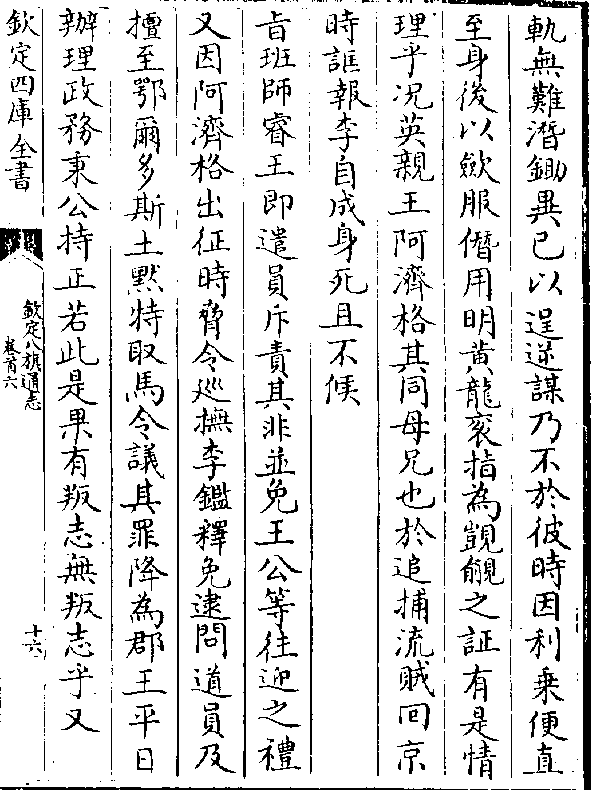 軌無難潛鋤異已以逞逆謀乃不於彼時因利乗便直
至身後以歛服僭用明黄龍衮指為覬覦之証有是情
理乎况英親王阿濟格其同母兄也於追捕流賊囘京
時誑報李自成身死且不候
㫖班師睿王即遣員斥責其非並免王公等往迎之禮
又因阿濟格出征時脅令巡撫李鑑釋免逮問道員及
擅至鄂爾多斯土黙特取馬令議其罪降為郡王平日
辦理政務秉公持正若此是果有叛志無叛志乎又
欽定四庫全書
欽定八旗通志
卷首六
十六